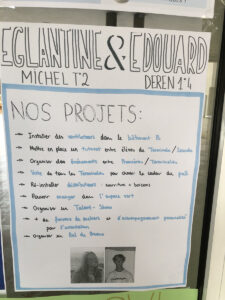 EGLANTINE & EDOUARD
MICHEL T°2 DEREN 1°4
NOS PROJETS:
→ Installer des ventilateurs dans le bâtiment
→ Mettre en place un tutorat entre élèves de Terminale / Seconde
→ Organiser des événements entre Premières / Terminales
→ Vote de tous les Terminales pour choisir la couleur du pull
→ Ré-installer distributeurs : nourriture + boissons
→ Pouvoir manger dans l'espace vert
→ Organiser un Talent-Show
→ + de forums de métiers et d'accompagnement personnalisé
pour l'orientation
→ Organiser un Bal de Promo